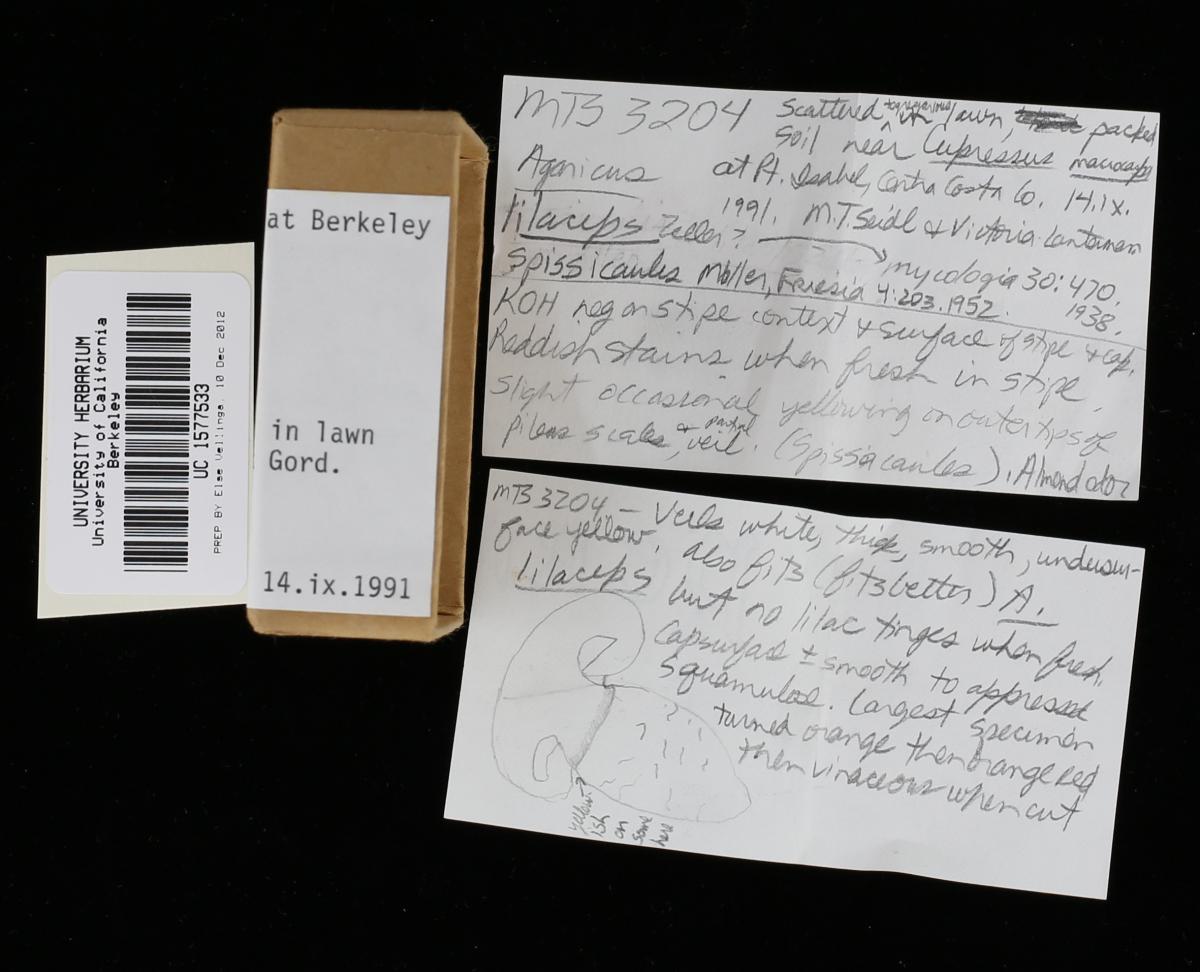 UNIVERSITY HERBARIUM
University of California
Berkeley
UC 1577533
PREP BY Else Vellinga, 10 Dec 2012
at Berkeley
in lawn
Gord.
14.ix.1991
MTS 3204
Scattered to gregarious in lawn, packed
soil near Cupressus macrocarpa
Agaricus at Pt. Isabel, Contra Costa Co. 14.ix.
1991. M.T. Seidl & Victoria
lilaceps Zeller? mycologia 30: 470.
1938.
spissicaulis Möller, Friesia 4:203.1952.
KOH neg on stipe context & surface of stipe & cap.
Reddish stains when fresh in stipe,
slight occasional yellowing on outer tips of
pileus scales & partial veil. (spissicaules). Almond odor
MTS 3204 - Veils white, thick, smooth, undersur-
face yellow. also fits (fits better) A.
lilaceps but no lilac tinges when fresh.
Capsurface ± smooth to appressed
squamulose. Largest specimen
turned orange then orange red
then vinaceous when cut
yellow?
ish
on
some
here